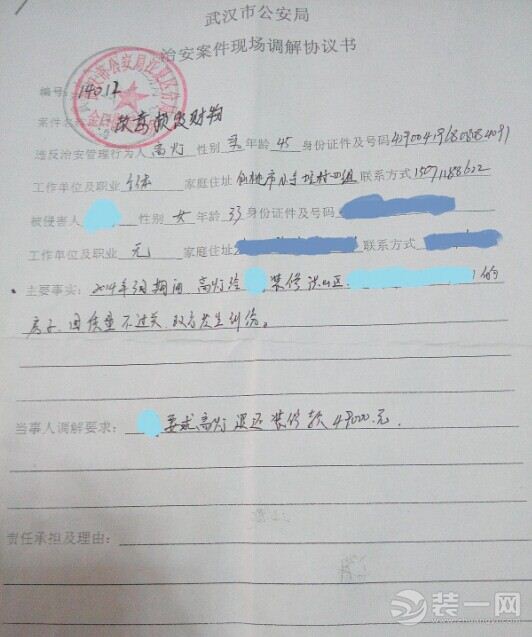 武汉市公安局
治安案件现场调解协议书
编号：14012
案件名称：故意损毁财物
违反治安管理行为人 高灯 性别 男 年龄 45 身份证件及号码
工作单位及职业 个体 家庭住址 联系方式
被侵害人 性别 女 年龄 33 身份证件及号码
工作单位及职业 无 家庭住址 联系方式
主要事实：2014年 期间 高灯给 装修洪山区 的
房子，因质量不过关，双方发生纠纷。
当事人调解要求： 要求高灯退还装修款49000元。
责任承担及理由：
装一网
www.zhuangyi.com